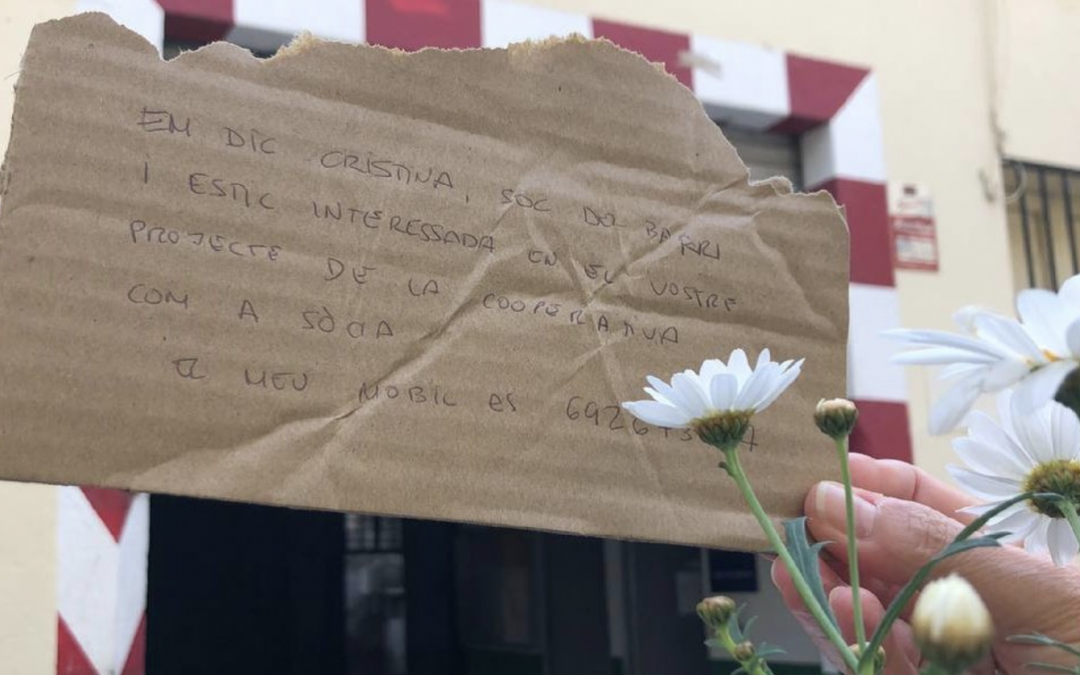 EM DIC CRISTINA, SOC DEL BARRI
I ESTIC INTERESSADA EN EL VOSTRE
PROJECTE DE LA COOPERATIVA
COM A SÒCIA
EL MEU MOBIL ES